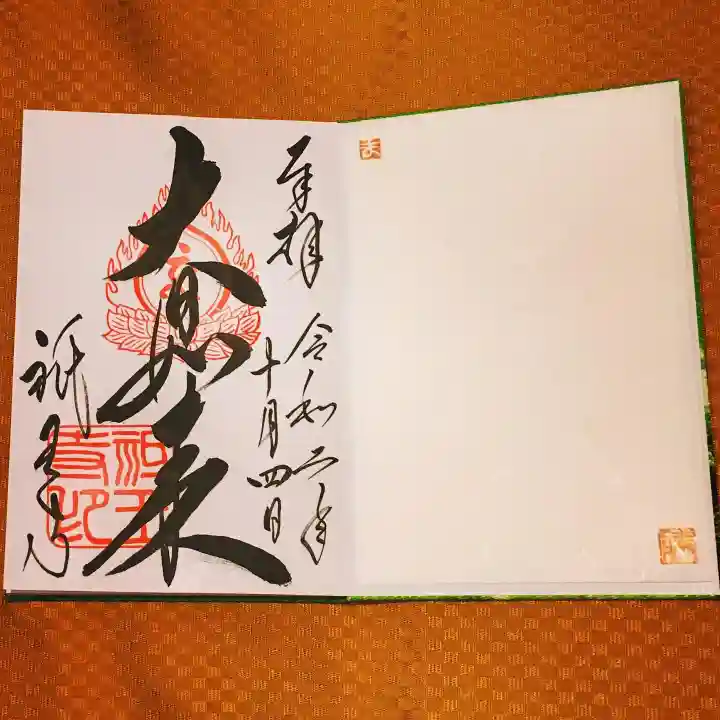 奉拝
令和二年
十月四日
大日如来
祇王寺
祇王寺印